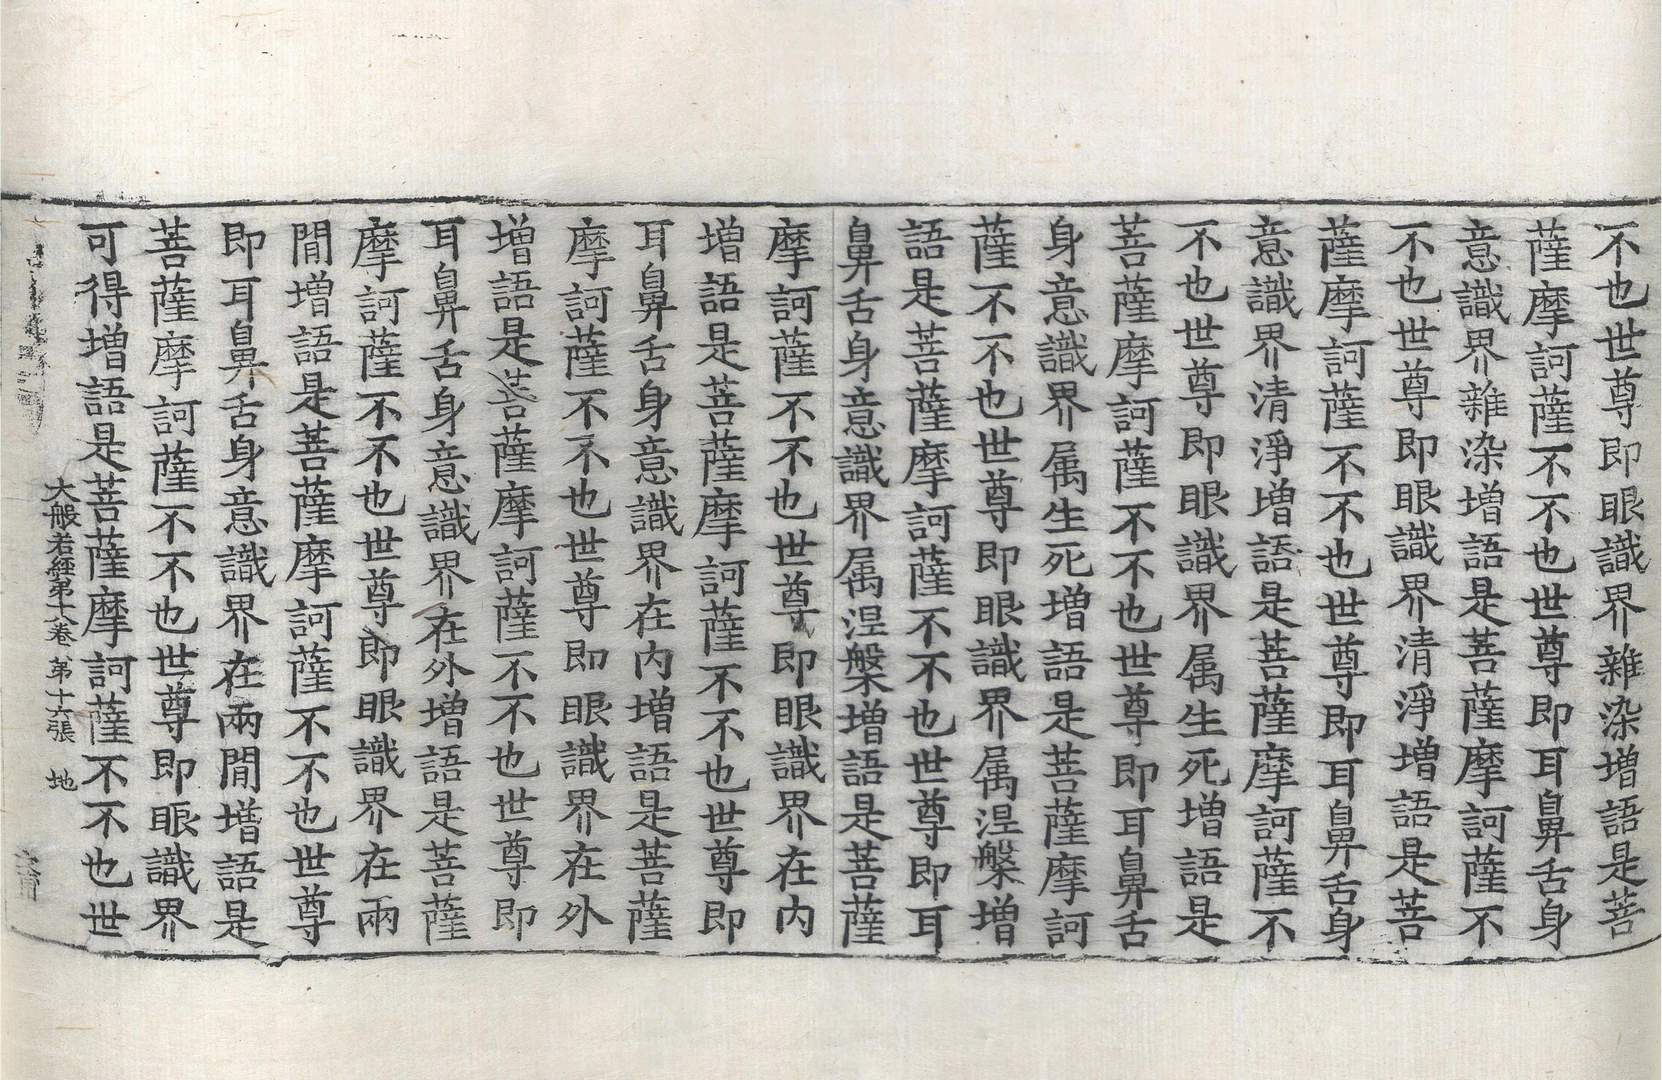 不也世尊即眼識界雜染增語是菩
薩摩訶薩不不也世尊即耳鼻舌身
意識界雜染增語是菩薩摩訶薩不
不也世尊即眼識界清淨增語是菩
薩摩訶薩不不也世尊即耳鼻舌身
意識界清淨增語是菩薩摩訶薩不
不也世尊即眼識界属生死增語是
菩薩摩訶薩不不也世尊即耳鼻舌
身意識界属生死增語是菩薩摩訶
薩不不也世尊即眼識界属涅槃增
語是菩薩摩訶薩不不也世尊即耳
鼻舌身意識界属涅槃增語是菩薩
摩訶薩不不也世尊即眼識界在内
增語是菩薩摩訶薩不不也世尊即
耳鼻舌身意識界在内增語是菩薩
摩訶薩不不也世尊即眼識界在外
增語是菩薩摩訶薩不不也世尊即
耳鼻舌身意識界在外增語是菩薩
摩訶薩不不也世尊即眼識界在兩
閒增語是菩薩摩訶薩不不也世尊
即耳鼻舌身意識界在兩閒增語是
菩薩摩訶薩不不也世尊即眼識界
可得增語是菩薩摩訶薩不不也世
大般若經第十八卷 第十六張 地